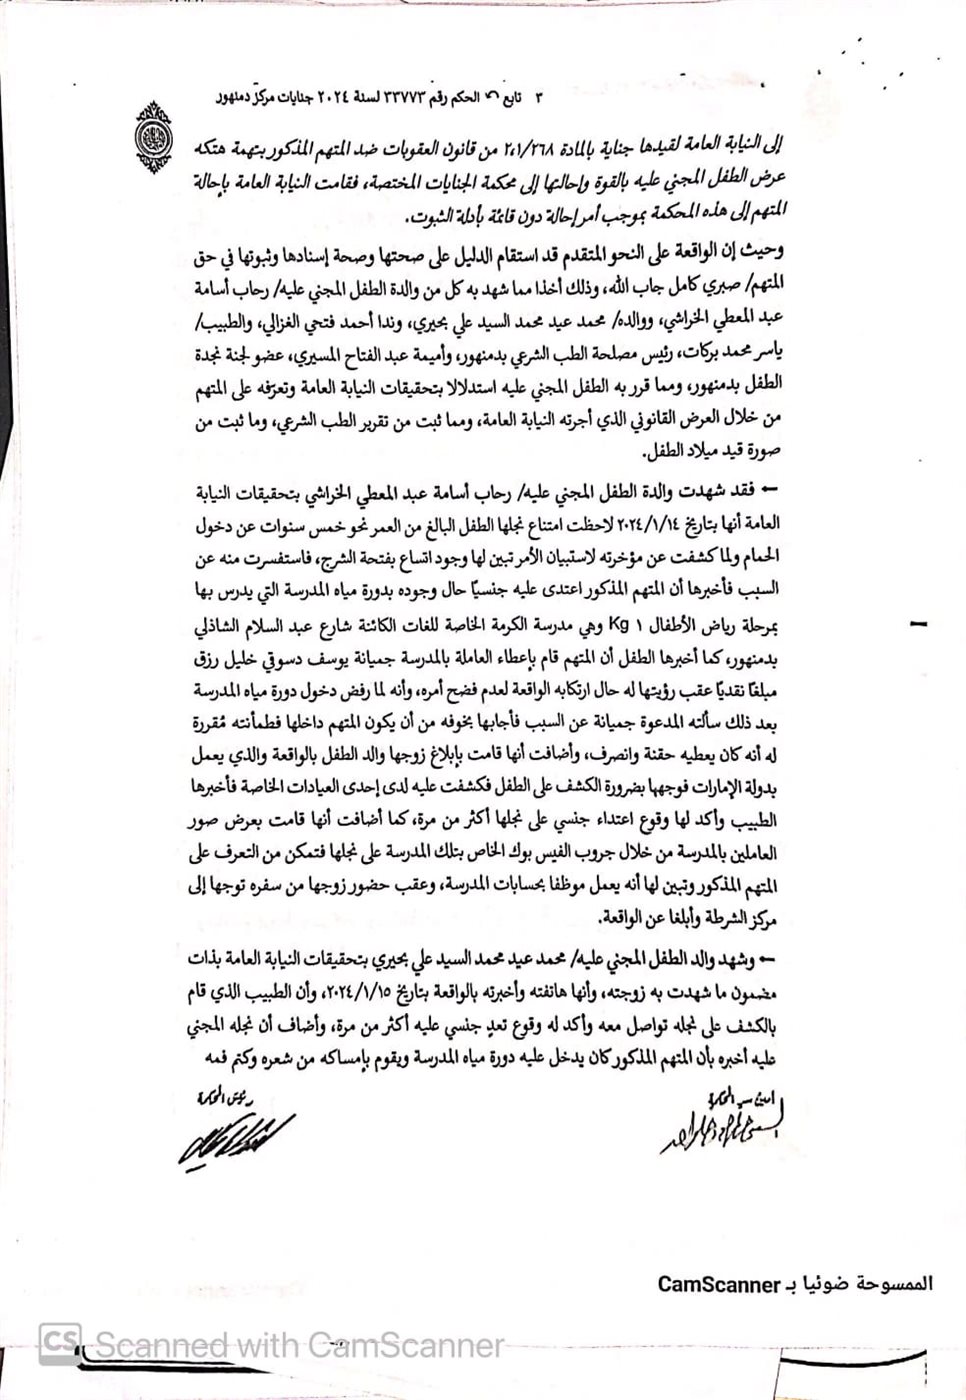 ٣ تابع الحكم رقم ٣٣٧٧٣ لسنة ٢٠٢٤ جنايات مركز دمنهور
إلى النيابة العامة لقيدها جناية بالمادة ٢،١/٢٦٨ من قانون العقوبات ضد المتهم المذكور بتهمة هتكه
عرض الطفل المجني عليه بالقوة وإحالتها إلى محكمة الجنايات المختصة، فقامت النيابة العامة بإحالة
المتهم إلى هذه المحكمة بموجب أمر إحالة دون قائمة بأدلة الثبوت.
وحيث إن الواقعة على النحو المتقدم قد استقام الدليل على صحتها وصحة إسنادها وثبوتها في حق
المتهم/ صبري كامل جاب الله، وذلك أخذا مما شهد به كل من والدة الطفل المجني عليه/ رحاب أسامة
عبد المعطي الخراشي، ووالده/ محمد عيد محمد السيد علي بحيري، وندا أحمد فتحي الغزالي، والطبيب/
ياسر محمد بركات، رئيس مصلحة الطب الشرعي بدمنهور، وأميمة عبد الفتاح المسيري، عضو لجنة نجدة
الطفل بدمنهور، ومما قرر به الطفل المجني عليه استدلالا بتحقيقات النيابة العامة وتعرفه على المتهم
من خلال العرض القانوني الذي أجرته النيابة العامة، ومما ثبت من تقرير الطب الشرعي، وما ثبت من
صورة قيد ميلاد الطفل.
– فقد شهدت والدة الطفل المجني عليه/ رحاب أسامة عبد المعطي الخراشي بتحقيقات النيابة
العامة أنها بتاريخ ٢٠٢٤/١/١٤ لاحظت امتناع نجلها الطفل البالغ من العمر نحو خمس سنوات عن دخول
الحمام ولما كشفت عن مؤخرته لاستبيان الأمر تبين لها وجود اتساع بفتحة الشرج، فاستفسرت منه عن
السبب فأخبرها أن المتهم المذكور اعتدى عليه جنسيًا حال وجوده بدورة مياه المدرسة التي يدرس بها
بمرحلة رياض الأطفال Kg ١ وهي مدرسة الكرمة الخاصة للغات الكائنة شارع عبد السلام الشاذلي
بدمنهور، كما أخبرها الطفل أن المتهم قام بإعطاء العاملة بالمدرسة جميانة يوسف دسوقي خليل رزق
مبلغًا نقديًا عقب رؤيتها له حال ارتكابه الواقعة لعدم فضح أمره، وأنه لما رفض دخول دورة مياه المدرسة
بعد ذلك سألته المدعوة جميانة عن السبب فأجابها بخوفه من أن يكون المتهم داخلها فطمأنته مُقررة
له أنه كان يعطيه حقنة وانصرف، وأضافت أنها قامت بإبلاغ زوجها والد الطفل بالواقعة والذي يعمل
بدولة الإمارات فوجهها بضرورة الكشف على الطفل فكشفت عليه لدى إحدى العيادات الخاصة فأخبرها
الطبيب وأكد لها وقوع اعتداء جنسي على نجلها أكثر من مرة، كما أضافت أنها قامت بعرض صور
العاملين بالمدرسة من خلال جروب الفيس بوك الخاص بتلك المدرسة على نجلها فتمكن من التعرف على
المتهم المذكور وتبين لها أنه يعمل موظفا بحسابات المدرسة، وعقب حضور زوجها من سفره توجها إلى
مركز الشرطة وأبلغا عن الواقعة.
– وشهد والد الطفل المجني عليه/ محمد عيد محمد السيد علي بحيري بتحقيقات النيابة العامة بذات
مضمون ما شهدت به زوجته، وأنها هاتفته وأخبرته بالواقعة بتاريخ ٢٠٢٤/١/١٥، وأن الطبيب الذي قام
بالكشف على نجله تواصل معه وأكد له وقوع تعدٍ جنسي عليه أكثر من مرة، وأضاف أن نجله المجني
عليه أخبره بأن المتهم المذكور كان يدخل عليه دورة مياه المدرسة ويقوم بإمساكه من شعره وكتم فمه
أمين سر المحكمة
رئيس المحكمة
الممسوحة ضوئيا بـ CamScanner
CS Scanned with CamScanner